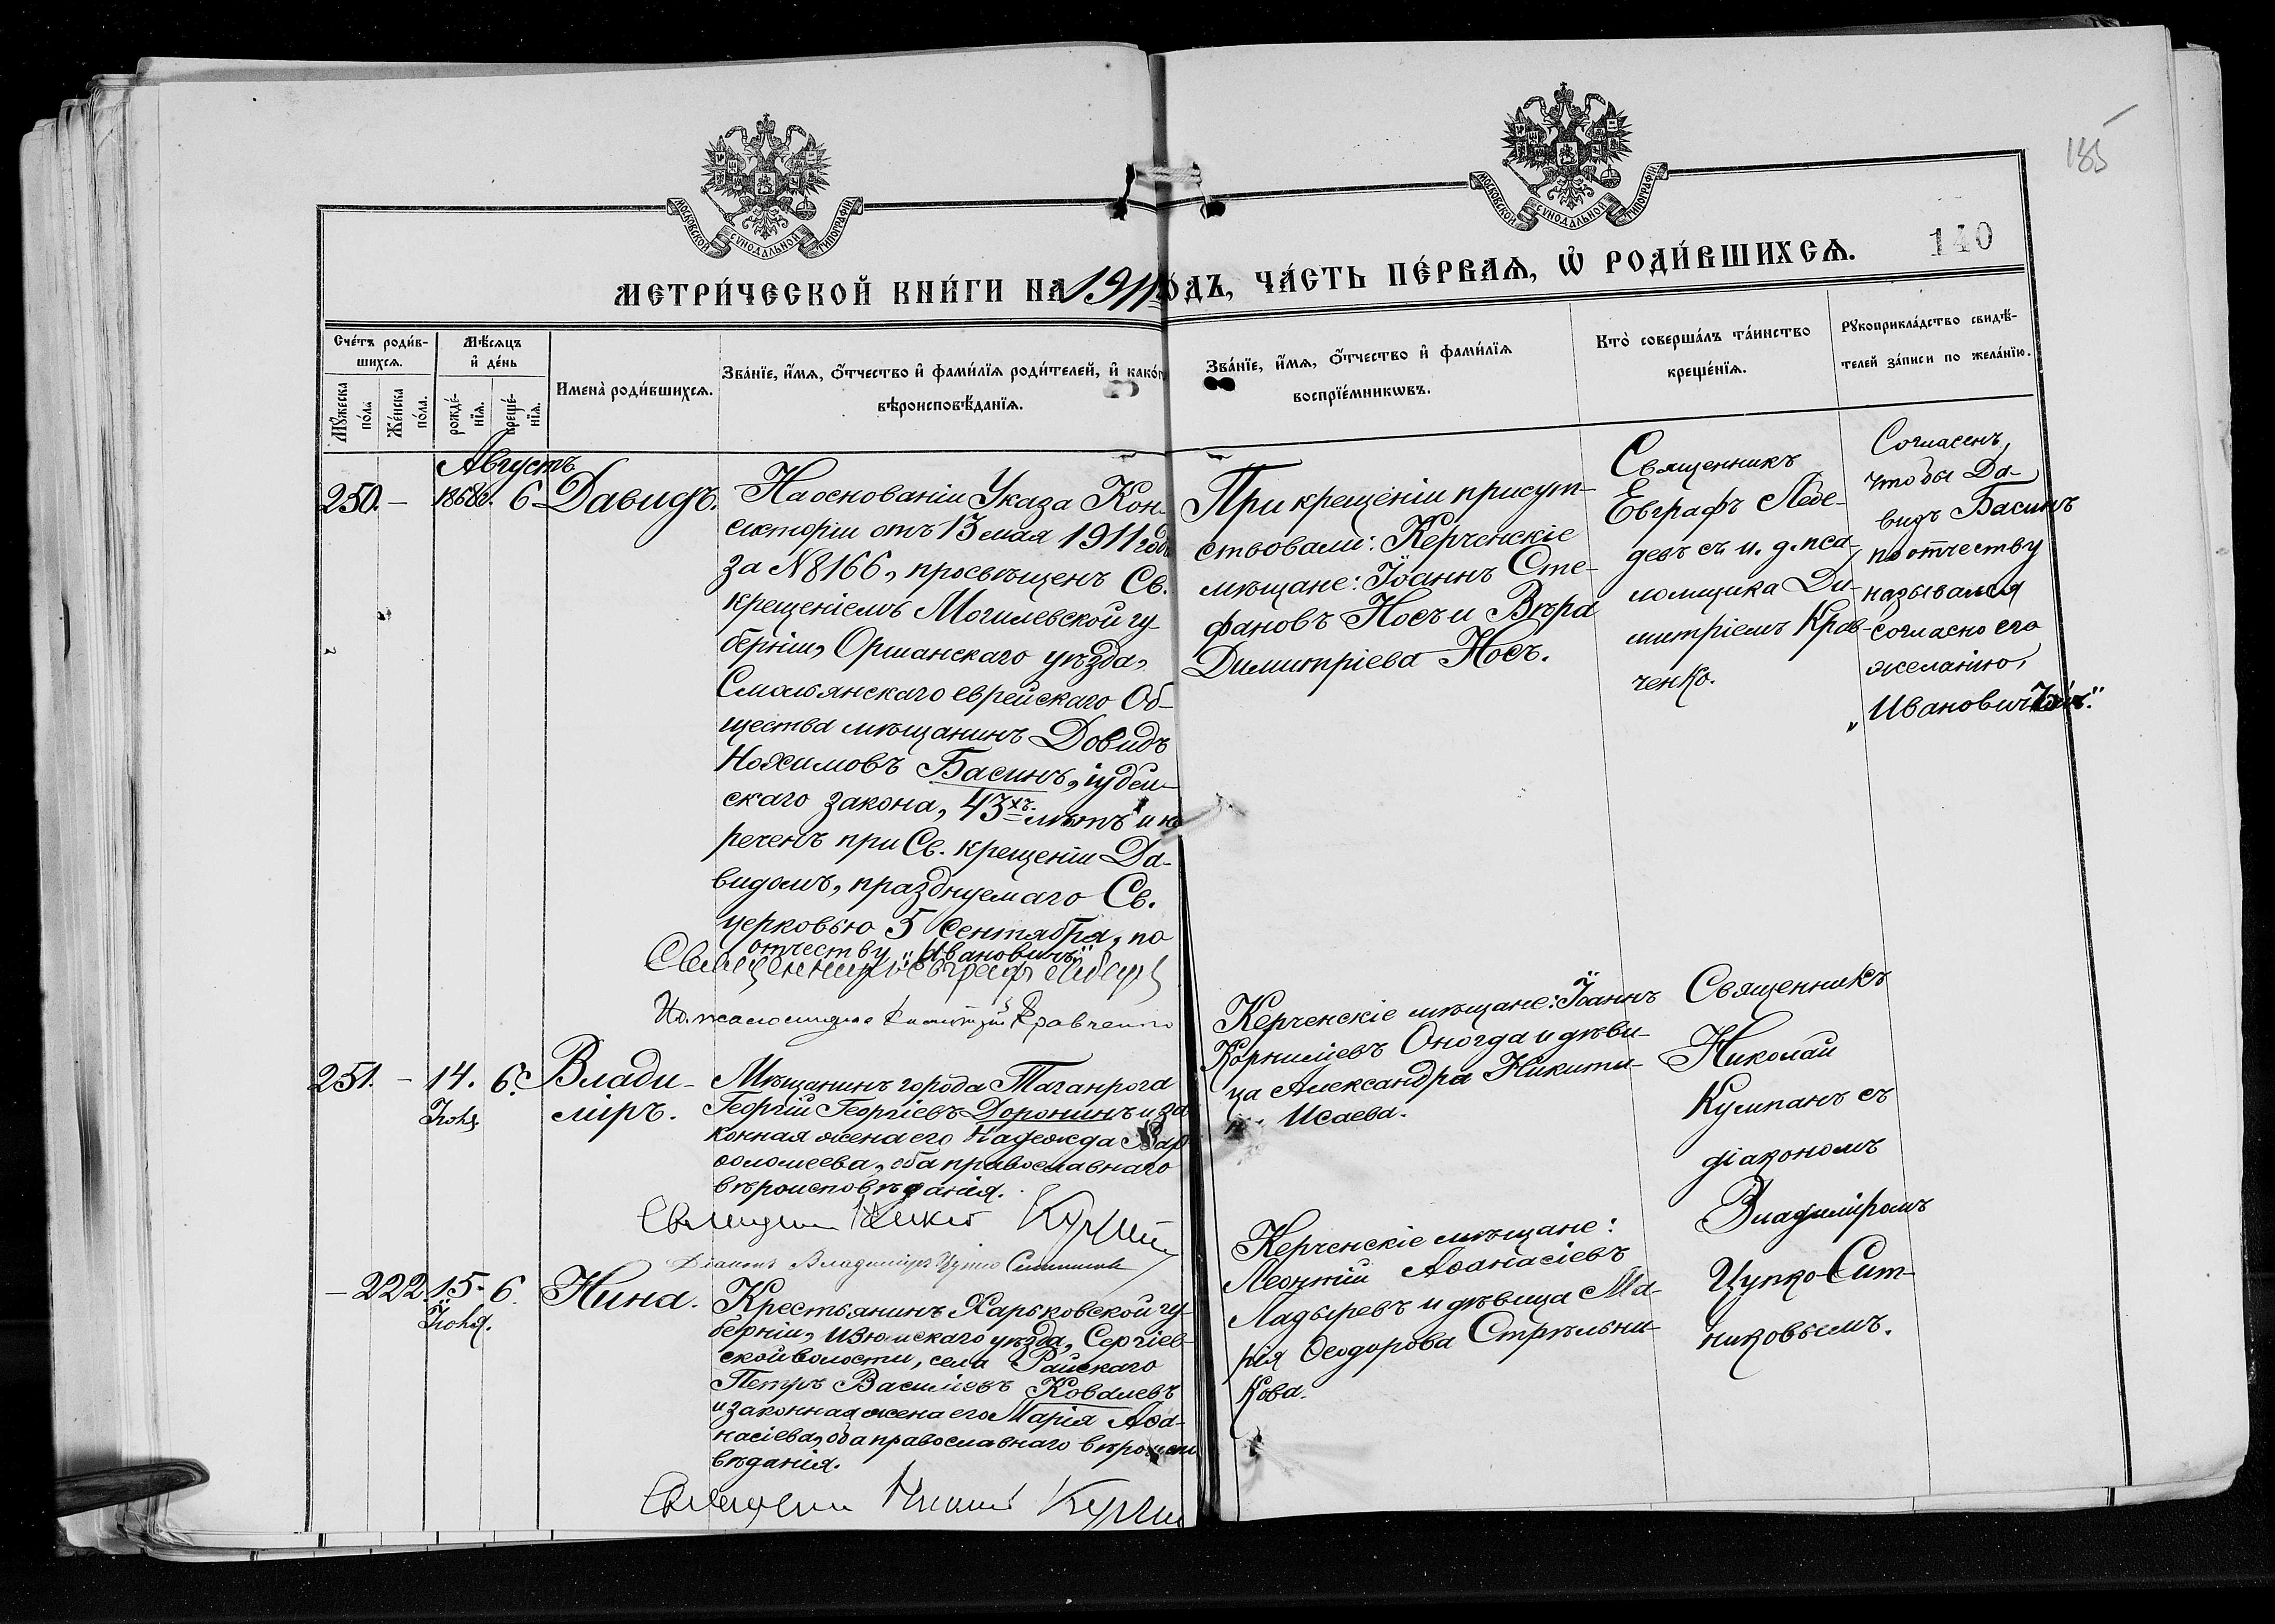 185
140
МОСКОВСКОЙ СѴНОДАЛЬНОЙ ТИПОГРАФІИ
МОСКОВСКОЙ СѴНОДАЛЬНОЙ ТИПОГРАФІИ
МЕТРИ́ЧЕСКОЙ КНИ́ГИ НА 1911 ГО́ДЪ, ЧА́СТЬ ПЕ́РВАѦ, Ѡ҆ РОДИ́ВШИХСѦ.
Сче́тъ роди́в-
шихсѧ.
Мꙋ́жеска
по́ла
Же́нска
по́ла.
Мѣ́сѧцъ
и҆ де́нь
рожде́-
нїѧ.
креще́-
нїѧ.
Имена̀ роди́вшихсѧ.
Зва́нїе, и҆́мѧ, ѻ҆́тчество и҆ фами́лїѧ роди́телей, и҆ како́гѡ
вѣроисповѣ́данїѧ.
Зва́нїе, и҆́мѧ, ѻ҆́тчество и҆ фами́лїѧ
воспрїе́мникѡвъ.
Кто̀ соверша́лъ та́инство
креще́нїѧ.
Рꙋкоприкла́дство свидѣ́-
телей за́писи по жела́нїю.
Августъ
250. – 1868 6 Давидъ.
На основаніи Указа Кон-
систоріи отъ 13 мая 1911 года
за N 8166, просвѣщенъ Св.
крещеніемъ Могилевской гу-
берніи, Оршанскаго уѣзда,
Смольянскаго еврейскаго Об-
щества мѣщанинъ Довидъ
Нохимовъ Басинъ, іудей-
скаго закона, 43хъ лѣтъ и на
реченъ при Св. крещеніи Да-
видомъ, празднуемаго Св.
церковью 5 Сентября, по
отчеству „Ивановичъ“
Священникъ Евграфъ
И. д. псаломщика Димитрій Кравченко
При крещеніи присут-
ствовали: Керченскіе
мѣщане: Іоаннъ Сте-
фановъ Носъ и Вѣра
Димитріева Носъ.
Священникъ
Евграфъ Лебе-
девъ съ и. д. пса-
ломщика Ди-
митріемъ Крав-
ченко.
Согласенъ,
чтобы Да-
видъ Басинъ
по отчеству
назывался
согласно его
желанію,
„Ивановичъ“
251. – 14. 6. Влади-
Іюля міръ.
Мѣщанинъ города Таганрога
Георгій Георгіевъ Доронинъ и за
конная жена его Надежда Вар
ѳоломеева, оба православнаго
вѣроисповѣданія.
Священникъ Николай Кумпанъ
Діаконъ Владиміръ Цупко Ситниковъ
Керченскіе мѣщане: Іоаннъ
Корниліевъ Оногда и дѣви-
ца Александра Никити-
Исаева.
Священникъ
Николай
Кумпанъ съ
діакономъ
Владиміромъ
Цупко-Сит-
никовымъ.
– 222 15. 6. Нина.
Іюля.
Крестьянинъ Харьковской гу-
берніи, Изюмскаго уѣзда, Сергіев-
ской волости, села Райскаго
Петръ Василіевъ Ковалевъ
и законная жена его Марія Аѳа-
насіева, оба православнаго вѣроиспо
вѣданія.
Священникъ Николай Кумпанъ
Керченскіе мѣщане:
Леонтій Аѳанасіевъ
Ладыревъ и дѣвица Ма-
рія Ѳеодорова Стрѣльни-
кова.